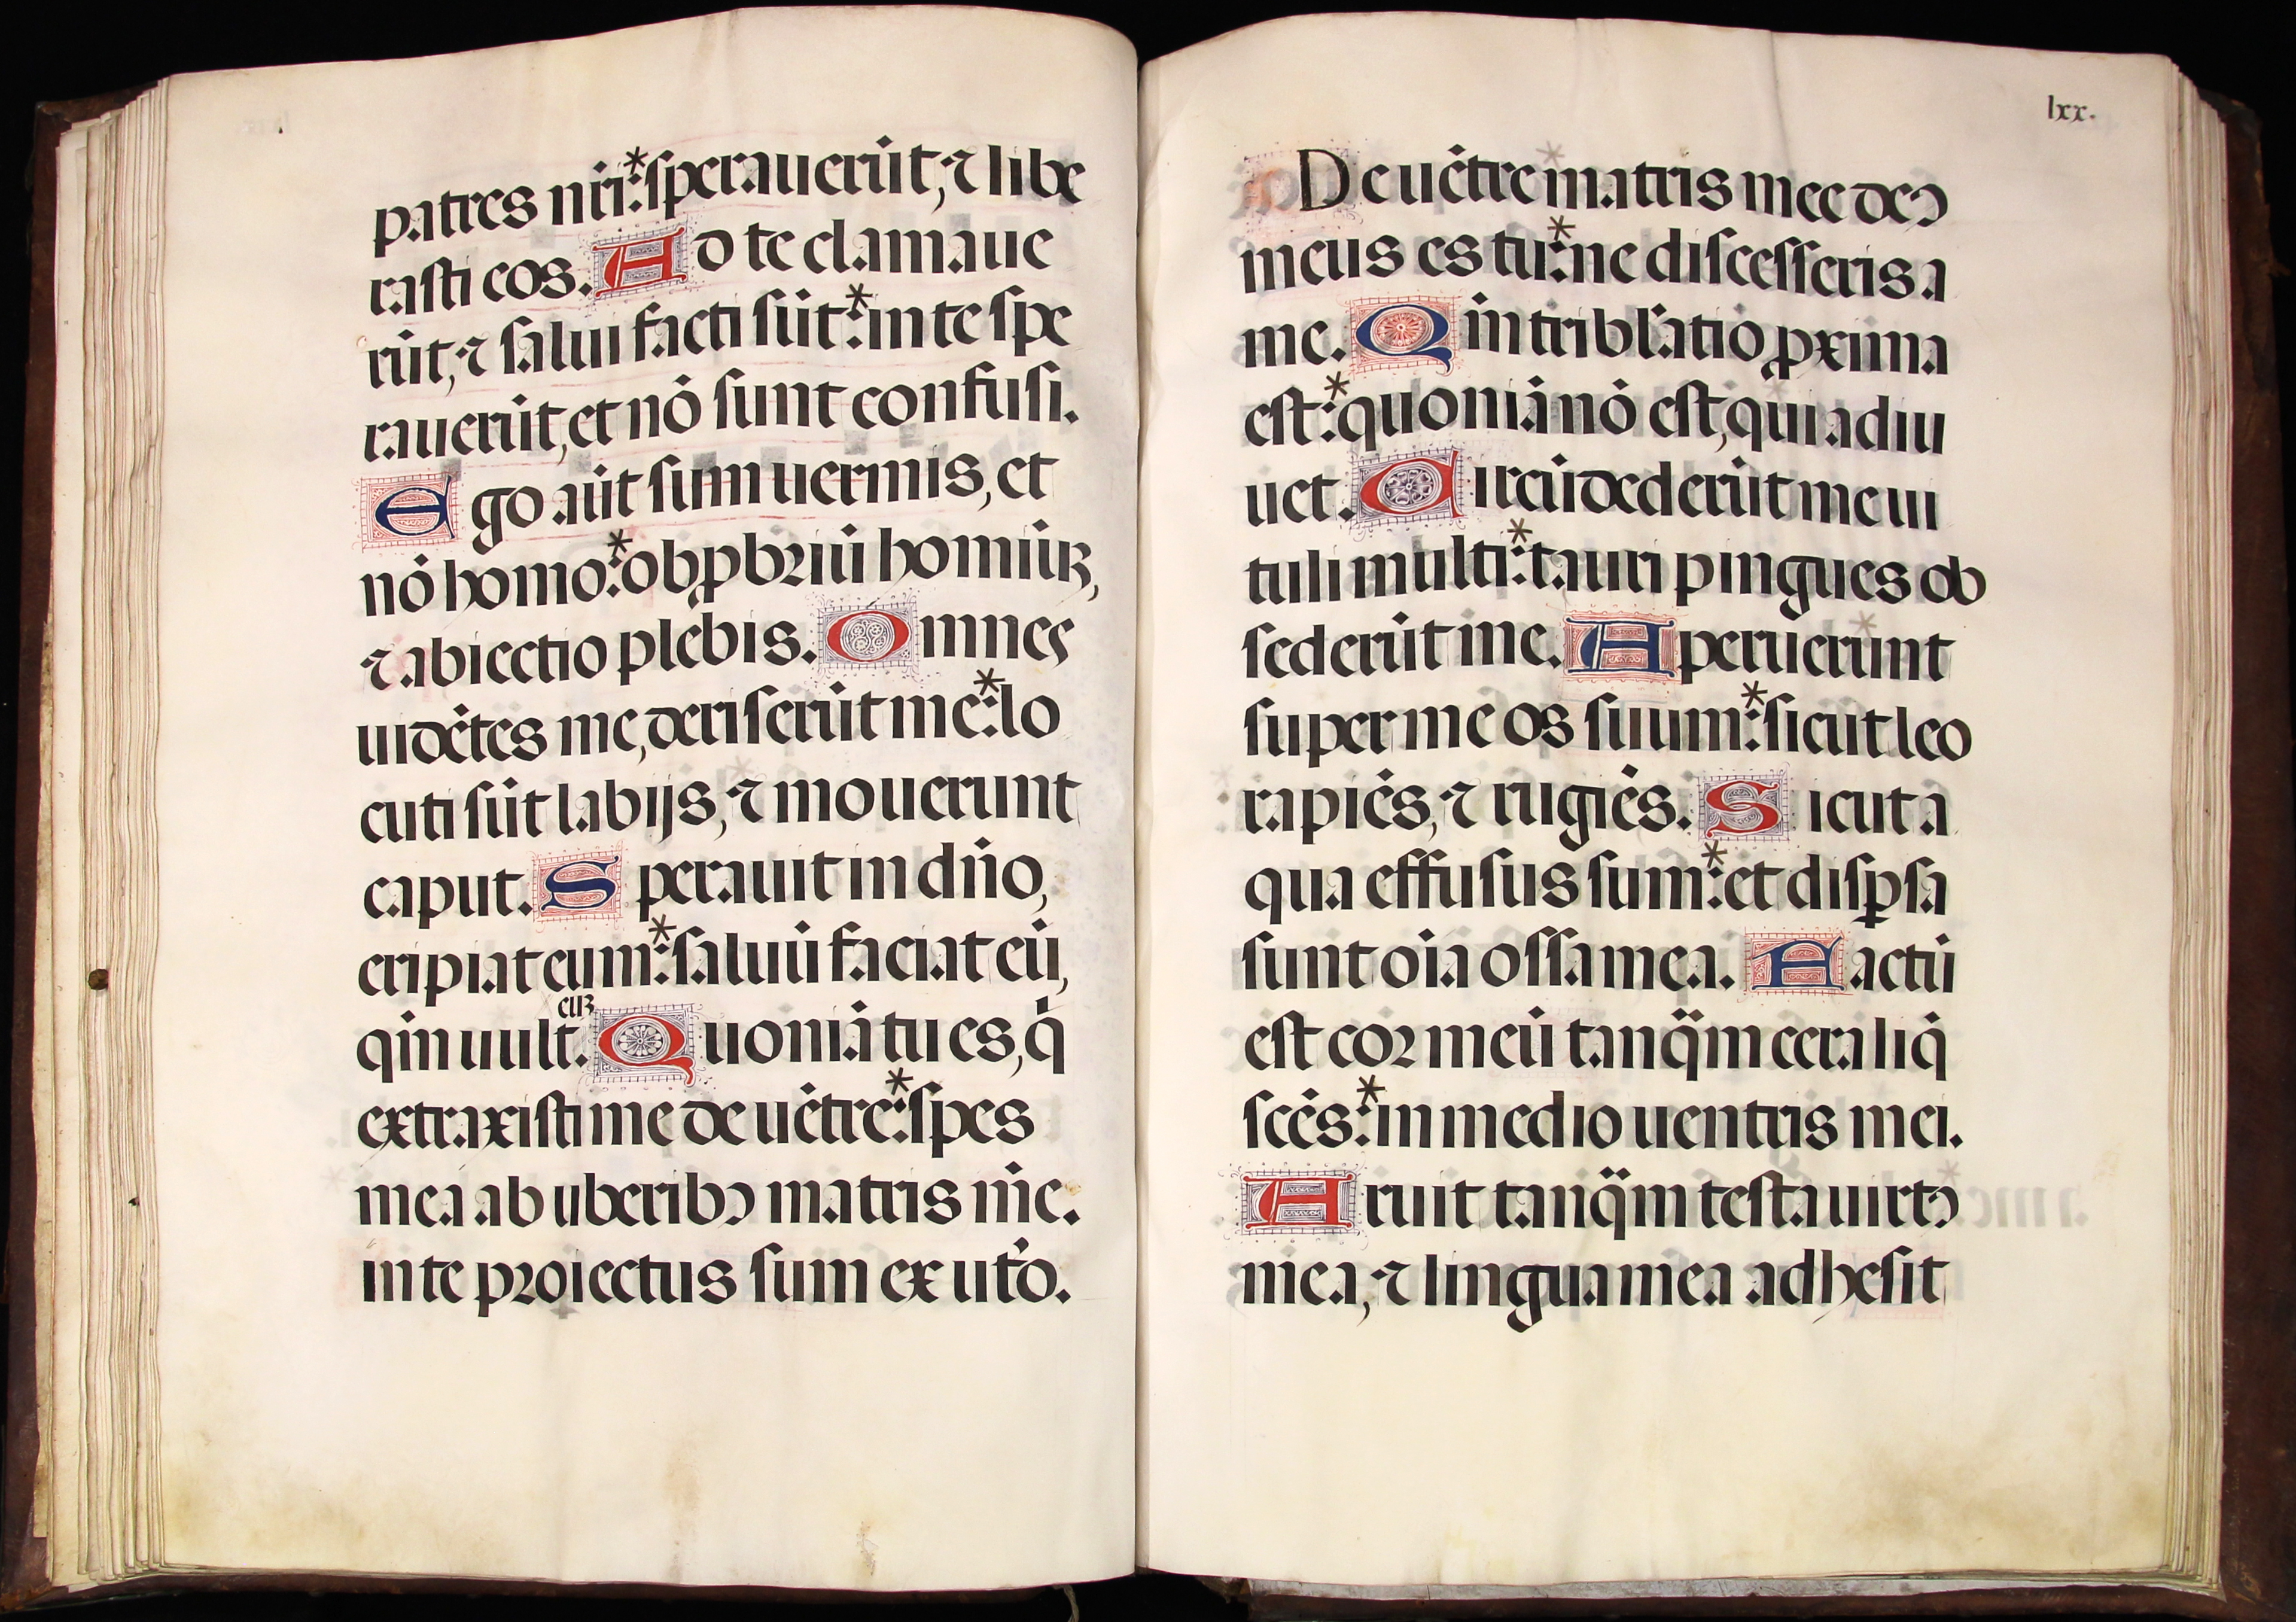 patres nr̃i:*sperauerūt, ⁊ libe
rasti eos. Ad te clamaue
rūt, ⁊ salui facti sūt:*in te spe
rauerūt, et nō sunt confusi.
Ego aūt sum uermis, et
nō homo:*obꝓbꝛiū homiūꝫ,
⁊ abiectio plebis. Omnes
uidētes me, deriserūt me:*lo
cuti sūt labijs, ⁊ mouerunt
caput. Sperauit in dño,
eripiat eum:*saluū faciat eū,
qm̄ uult euꝫ. Quoniā tu es, q̇
extraxisti me de uētre:*spes
mea ab uberibꝰ matris mē.
in te pꝛoiectus sum ex ut̃o.
lxx.
De uētre matris mee deꝰ
meus es tu:*ne discesseris a
me. Qm̄ tribl̃atio ꝓxima
est:*quoniā nō est, qui adiu
uet. Circūdederūt me ui
tuli multi:*tauri pingues ob
sederūt me. Aperuerunt
super me os suum:*sicut leo
rapiēs, ⁊ rugiēs. Sicut a
qua effusus sum:*et disꝑsa
sunt oīa ossa mea. Factū
est coꝛ meū tanq̃m cera liq̇
scēs:*in medio uentris mei.
Aruit tanq̃m testa uirtꝰ
mea, ⁊ lingua mea adhesit